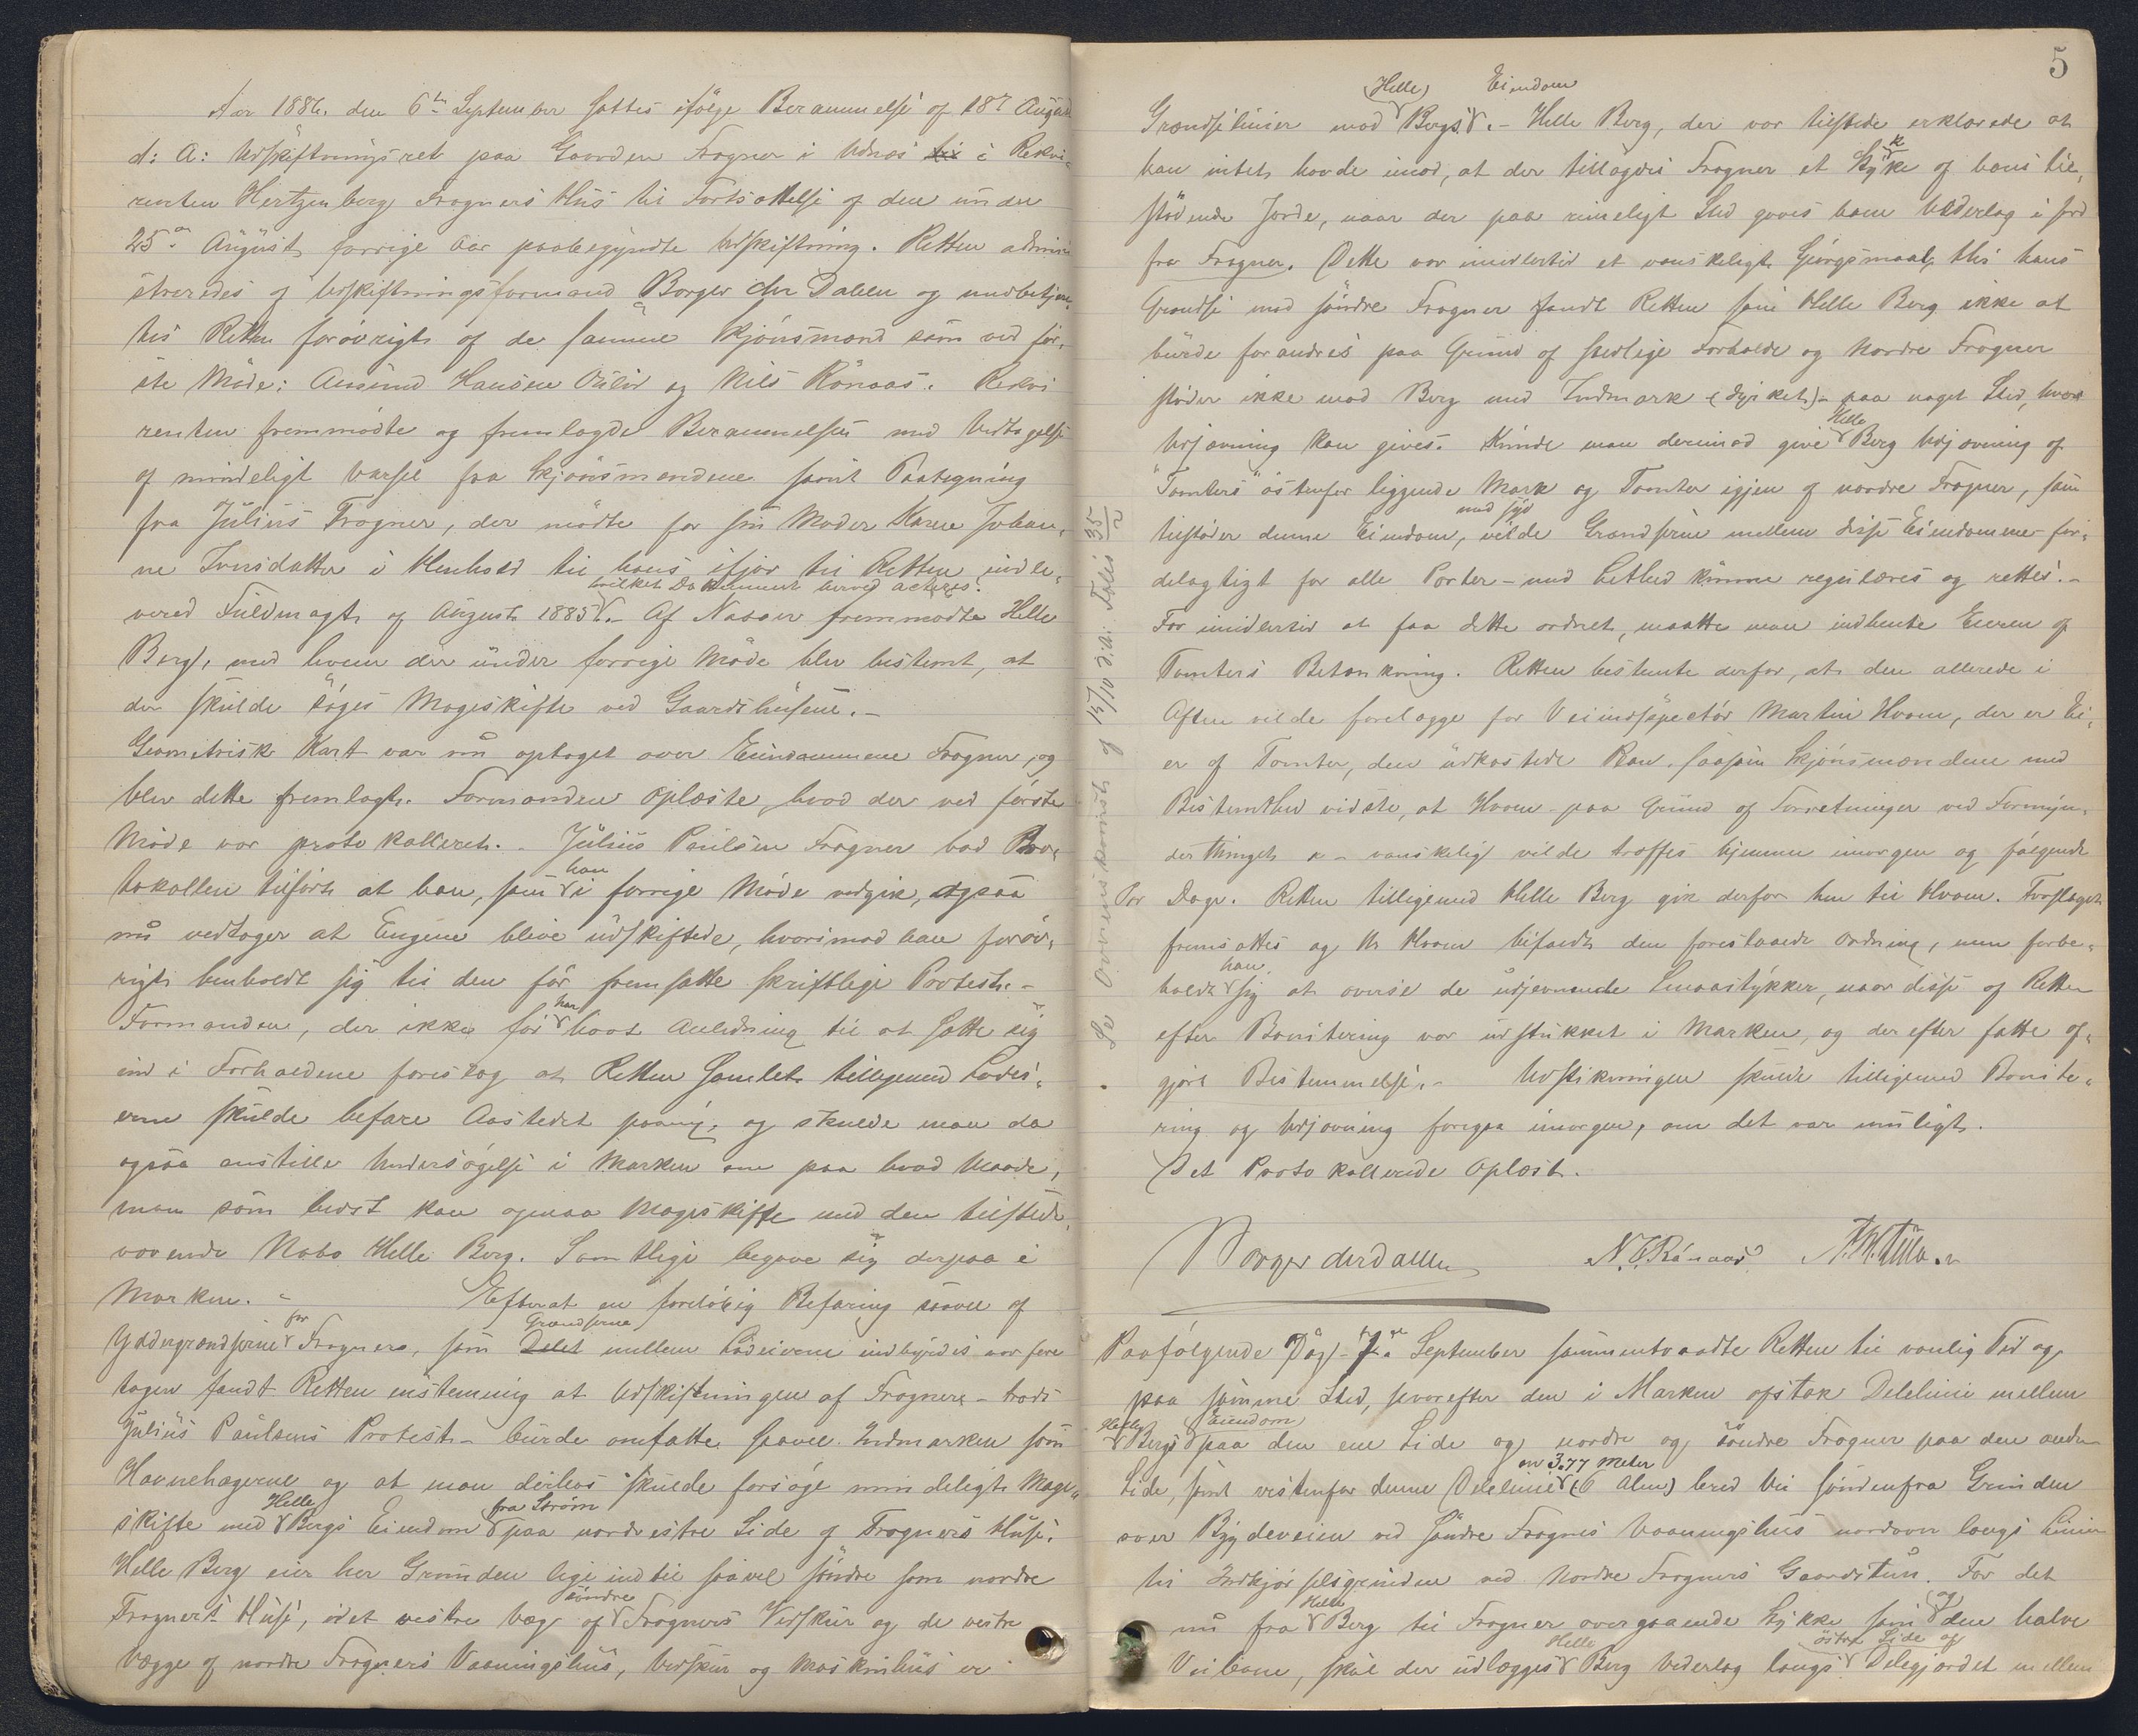 Aar 1886. den 6te September sattes ifølge Berammelse af 18de August
d: A: Udskiftningsret paa Gaarden Frogner i Udnæs til i Rekvi-
renten Hertzenberg Frogners Hus til Fortsættelse af den under
25de August forrige Aar paabegyndte Udskiftning. Retten admini-
streredes af Udskiftningsformand Borger der Dallen og medbetjen-
tes Retten forøvrigt af de samme Skjønsmænd som ved før-
ste Møde: Amund Hansen og Nils Rönaas. Rekvi
renten fremmødte og fremlagde Berammelsen med Vedtagelse
af mindeligt Varsel fra Skjønsmændene samt Paategning
fra Julius Frogner, der mødte for sin Moder Karen Johan-
ne Iversdatter i Henhold til hans ifjor til Retten indle-
hvilket Dokument herved acteres.
vered Fuldmagt af August 1885. - Af Naboer fremmødte Helle
Berg, med hvem der under forrige Møde blev bestemt, at
der skulde søges Mageskifte ved Gaardshusene. -
Geometrisk Kart var nu optaget over Eiendommene Frogner, og
blev dette fremlagt. Formanden oplæste, hvad der ved første
Møde var protokolleret. - Julius Paulsen Frogner bad Pro-
han
tokollen tilført at han, som i forrige Møde vedgik, ogsaa
nu vedtager at Engene blive udskiftede, hvorimod han forøv-
rigt henholdt sig til den før fremsatte skriftlige Protest. -
har
Formanden, der ikke før havt Anledning til at sætte sig
ind i Forholdene foreslog at Retten samlet tilligemed Lodei-
erne skulde befare Aastedet paany, og skulde man da
ogsaa anstille Undersøgelse i Marken om paa hvad Maade,
man som bedst kan opnaa Mageskifte med den tilstede-
værende Nabo Helle Berg. Samtlige begave sig derpaa i
Marken. - Efterat en foreløbig Befaring saavel af
for Grændserne
Ydergrændserne Frognere, som Delet mellem Lodeierne indbyrdes var fore
tagen fandt Retten enstemmig at Udskiftningen af Frognere - trods
Julius Paulsens Protest - burde omfatte saavel Indmarken som
Havnehagerne og at man derhos skulde forsøge mindeligt Mage-
Helle fra Strøm
skifte med Bergs Eiendom paa nordvestre Side af Frogners Huse.
Helle Berg eier her Grunden lige indtil saavel søndre som nordre
søndre
Frogners Huse, idet vestre Væg af Frogners Vedskur og de vestre
Vægge af nordre Frogners Vaaningshus, Vedskur og Maskinhus er
5
Helle Eiendom
Grændselinier mod Bergs. - Helle Berg, der var tilstede erklærede at
k
han intet havde imod, at der tillagdes Frogner et Stykke af hans til-
stødende Jorde, naar der paa rimeligt Sted gaves ham Vederlag i Jord
fra Frogner. Dette var imidlertid et vanskeligt Spørgsmaal, thi hans
Grændse mod søndre Frogner fandt Retten som Helle Berg ikke at
burde forandres paa Grund af stedlige Forholde og Nordre Frogner
støder ikke mod Berg med Indmark (dyrket) - paa noget Sted, hvor
Helle
Udjævning kan gives. Kunde man derimod give Berg Udjævning af
"Tomters" østenfor liggende Mark og Tomter igjen af nordre Frogner, som
mod syd
tilstøder denne Eiendom, vilde Grændserne mellem disse Eiendomme for-
delagtigt for alle Parter - med Lethed kunne reguleres og rettes. -
For imidlertid at faa dette ordnet, maatte man indhente Eieren af
Tomters Betænkning. Retten bestemte derfor, at den allerede i
Aften vilde forelægge for Veiinspectør Martin Hvam, der er Ei-
er af Tomter, den udkastede Plan, saasom Skjønsmændene med
Bestemthed vidste, at Hvam - paa Grund af Forretninger ved Formyn-
derthinget - vanskelig vilde træffes hjemme imorgen og følgende
Par Dage. Retten tilligemed Helle Berg gik derfor hen til Hvam. Forslaget
fremsattes og Hr Hvam bifaldt den foreslaaede Ordning, men forbe-
han
holdt sig at overse de udjevnende Smaastykker, naar disse af Retten
efter Bonitering var udstukket i Marken, og derefter fatte af-
gjort Bestemmelse. - Udstikningen skulde tilligemed Bonite-
ring og Udjævning foregaa imorgen, om det var muligt.
Det Protokollerede Oplæst.
Se Overenskomst af 15/10 d. A. Folio 35/2
Borger der Dallen N. O. Rönaas
Paafølgende Dag - 7de September sammentraadte Retten til vanlig Tid og
paa samme Sted, hvorefter den i Marken afstak Delelinie mellem
Helle Eiendom
Bergs paa den ene Side og nordre og søndre Frogner paa den anden
en 3.77 Meter
Side, samt vestenfor denne Delelinie (6 Alen) bred Vei søndenfra Grinden
over Bygdeveien ved Søndre Frogners Vaaningshus nordover langs Linien
til Indkjørselsgrinden ved Nordre Frogners Gaardstun. For det
Helle af
nu fra Berg til Frogner overgaaende Stykke som den halve
Helle østre Side af
Veibane, skal der udlægges Berg Vederlag langs Delegjærdet mellem